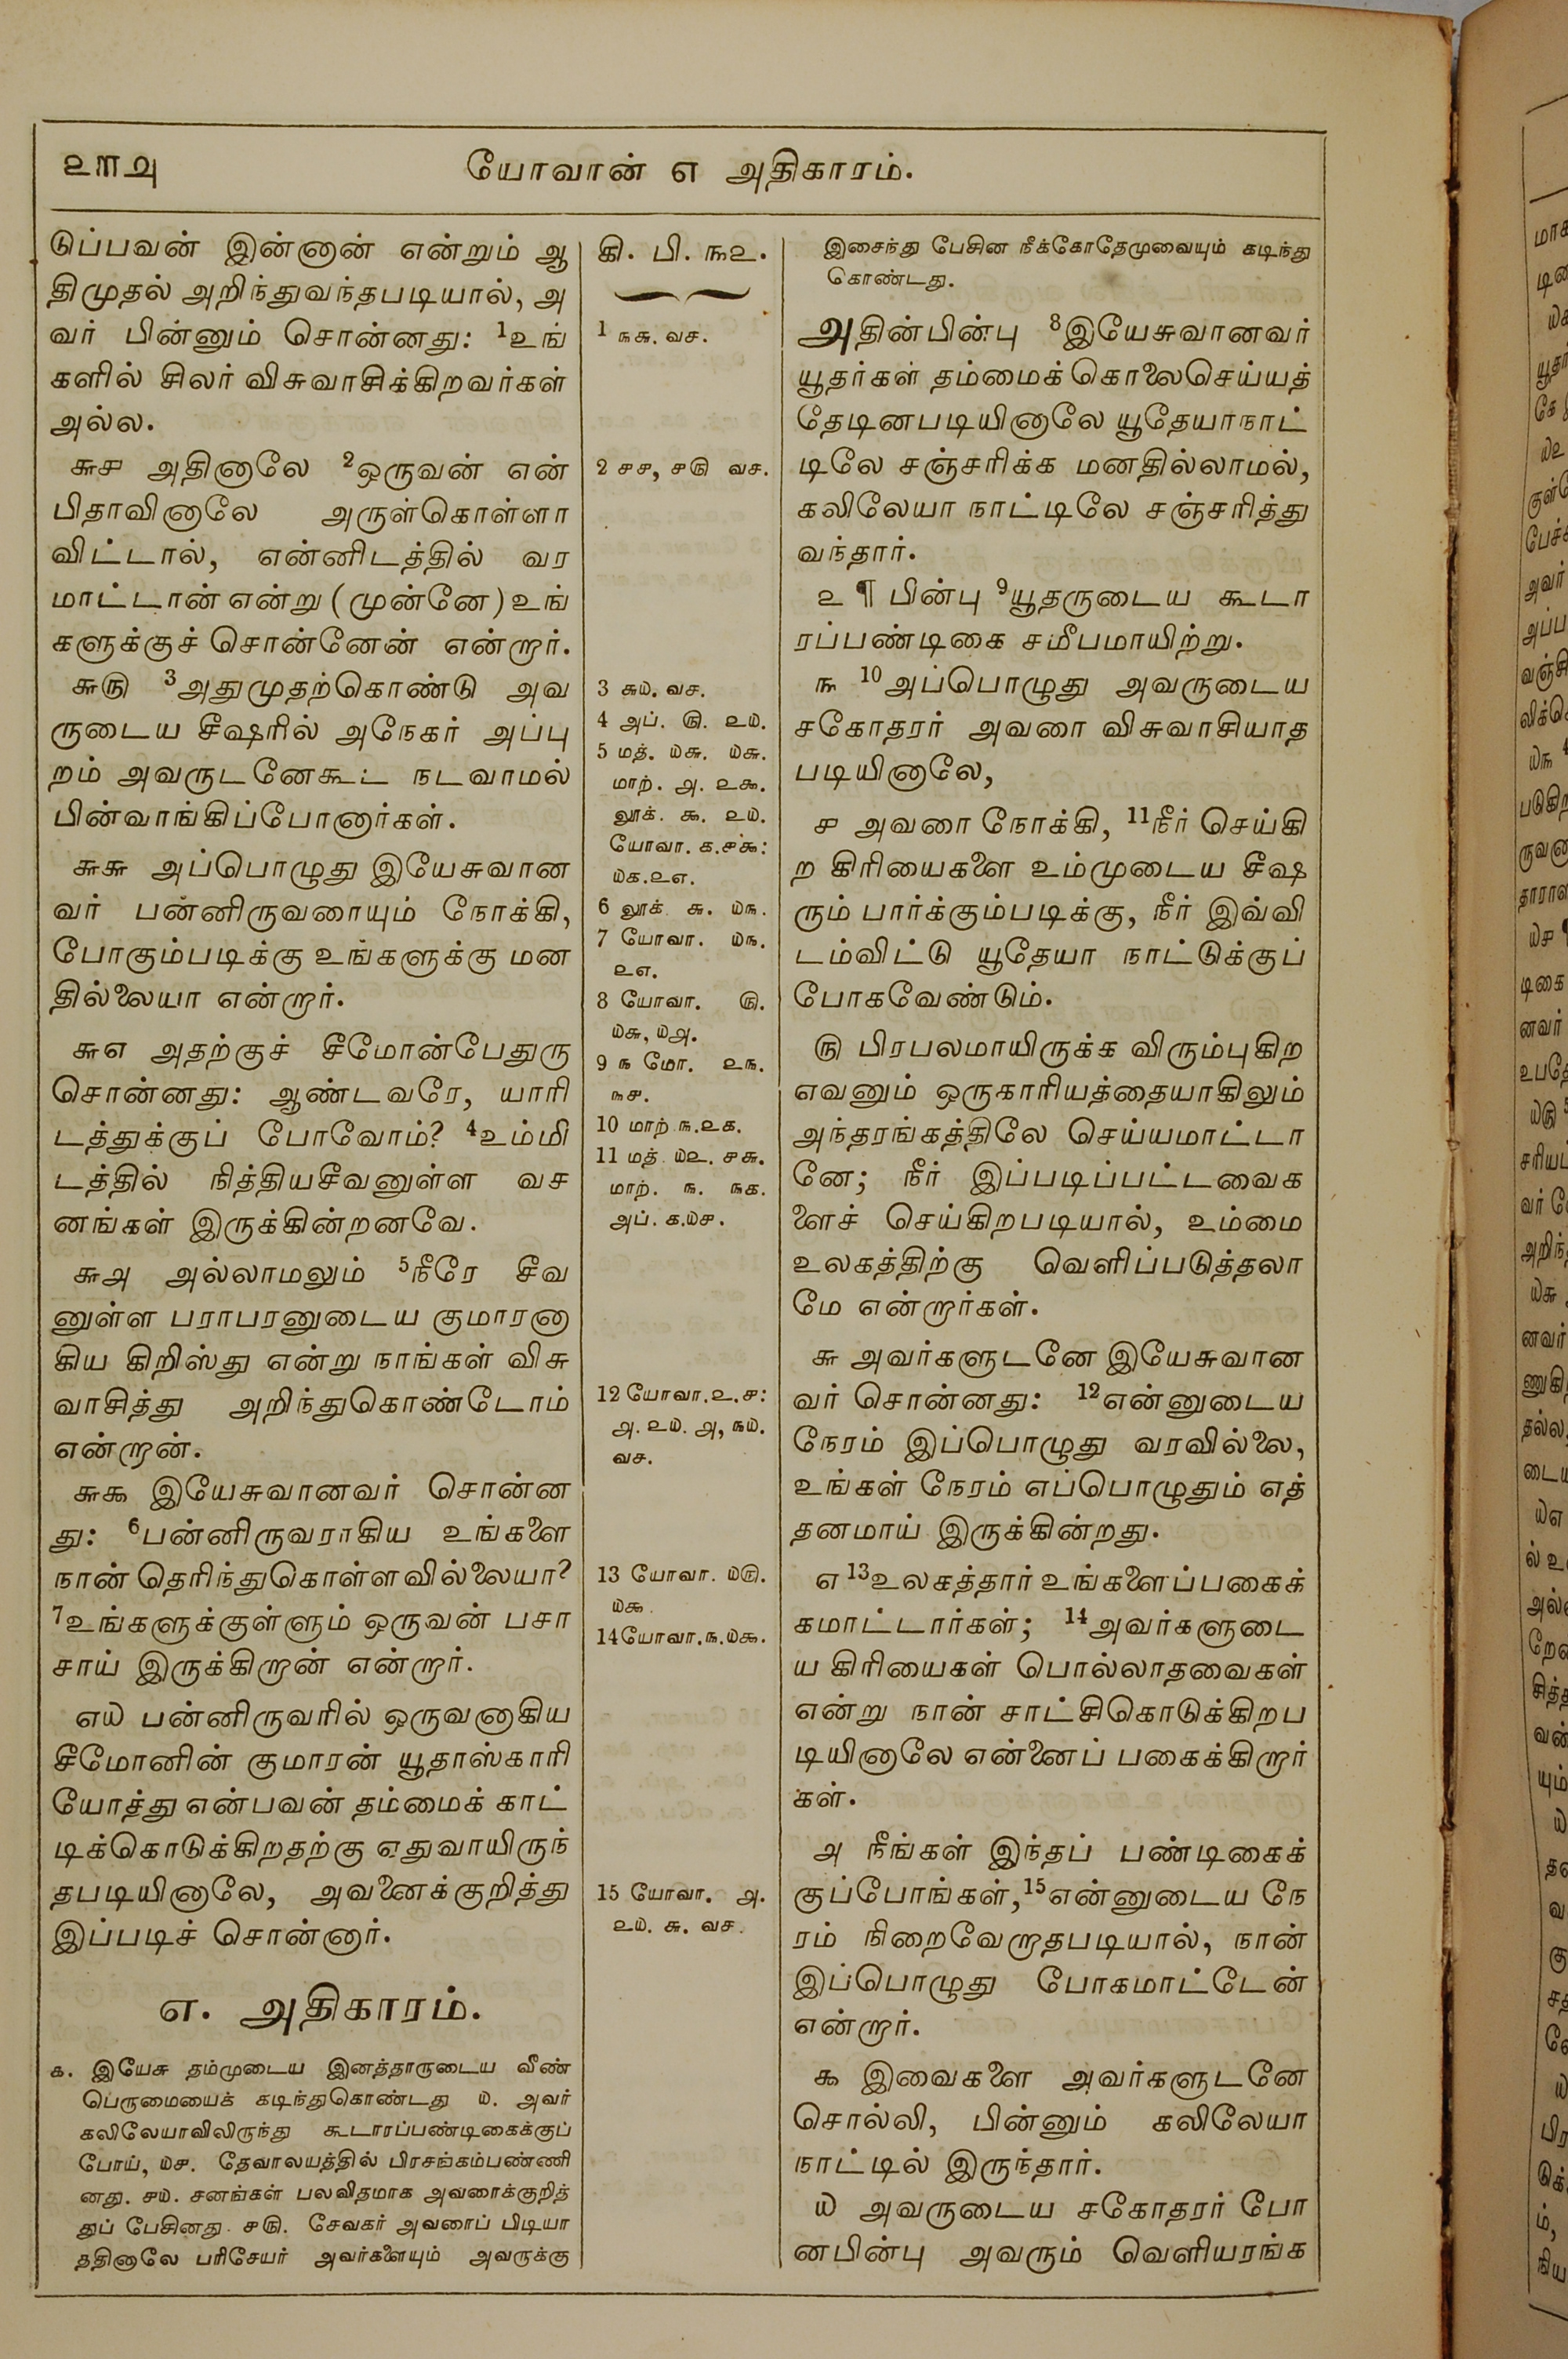 ௨௱௮
யோவான் ௭ அதிகாரம்.
டுப்பவன் இன்னான் என்றும் ஆ
திமுதல் அறிந்துவந்தபடியால், அ
வர் பின்னும் சொன்னது: ¹உங்
களில் சிலர் விசுவாசிக்கிறவர்கள்
அல்ல.
௬௪ அதினாலே ²ஒருவன் என்
பிதாவினாலே அருள்கொள்ளா
விட்டால், என்னிடத்தில் வர
மாட்டான் என்று (முன்னே) உங்
களுக்குச் சொன்னேன் என்றார்.
௬௫ ³அதுமுதற்கொண்டு அவ
ருடைய சீஷரில் அநேகர் அப்பு
றம் அவருடனேகூட நடவாமல்
பின்வாங்கிப்போனார்கள்.
௬௬ அப்பொழுது இயேசுவான
வர் பன்னிருவரையும் நோக்கி,
போகும்படிக்கு உங்களுக்கு மன
தில்லையா என்றார்.
௬௭ அதற்குச் சீமோன்பேதுரு
சொன்னது: ஆண்டவரே, யாரி
டத்துக்குப் போவோம்? ⁴உம்மி
டத்தில் நித்தியசீவனுள்ள வச
னங்கள் இருக்கின்றனவே.
௬௮ அல்லாமலும் ⁵நீரே சீவ
னுள்ள பராபரனுடைய குமாரனா
கிய கிறிஸ்து என்று நாங்கள் விசு
வாசித்து அறிந்துகொண்டோம்
என்றான்.
௬௯ இயேசுவானவர் சொன்ன
து: ⁶பன்னிருவராகிய உங்களை
நான் தெரிந்துகொள்ளவில்லையா?
⁷உங்களுக்குள்ளும் ஒருவன் பசா
சாய் இருக்கிறான் என்றார்.
௭௰ பன்னிருவரில் ஒருவனாகிய
சீமோனின் குமாரன் யூதாஸ்காரி
யோத்து என்பவன் தம்மைக் காட்
டிக்கொடுக்கிறதற்கு ஏதுவாயிருந்
தபடியினாலே, அவனைக்குறித்து
இப்படிச் சொன்னார்.
௭. அதிகாரம்.
௧. இயேசு தம்முடைய இனத்தாருடைய வீண்
பெருமையைக் கடிந்துகொண்டது ௰. அவர்
கலிலேயாவிலிருந்து கூடாரப்பண்டிகைக்குப்
போய், ௰௪. தேவாலயத்தில் பிரசங்கம்பண்ணி
னது. ௪௰. சனங்கள் பலவிதமாக அவரைக்குறித்
துப் பேசினது. ௪௫. சேவகர் அவரைப் பிடியா
ததினாலே பரிசேயர் அவர்களையும் அவருக்கு
கி. பி. ௩௨.
1 ௩௬. வச.
2 ௪௪, ௪௫ வச.
3 ௬௰. வச.
4 அப். ௫. ௨௰.
5 மத். ௰௬. ௰௬.
மாற். ௮. ௨௯.
லூக். ௯. ௨௰.
யோவா. ௧.௪௯:
௰௧.௨௭.
6 லூக் ௬. ௰௩.
7 யோவா. ௰௩.
௨௭.
8 யோவா. ௫.
௰௬, ௰௮.
9 ௩ மோ. ௨௩.
௩௪.
10 மாற் ௩.௨௧.
11 மத் ௰௨. ௪௬.
மாற். ௩. ௩௧.
அப். ௧.௰௪.
12 யோவா.௨.௪:
௮. ௨௰. ௮, ௩௰.
வச.
13 யோவா. ௰௫.
௰௯.
14 யோவா.௩.௰௯.
15 யோவா. ௮.
௨௰. ௬. வச.
இசைந்து பேசின நீக்கோதேமுவையும் கடிந்து
கொண்டது.
அதின்பின்பு ⁸இயேசுவானவர்
யூதர்கள் தம்மைக் கொலைசெய்யத்
தேடினபடியினாலே யூதேயாநாட்
டிலே சஞ்சரிக்க மனதில்லாமல்,
கலிலேயா நாட்டிலே சஞ்சரித்து
வந்தார்.
௨ ¶ பின்பு ⁹யூதருடைய கூடா
ரப்பண்டிகை சமீபமாயிற்று.
௩ ¹⁰அப்பொழுது அவருடைய
சகோதரர் அவரை விசுவாசியாத
படியினாலே,
௪ அவரை நோக்கி, ¹¹நீர் செய்கி
ற கிரியைகளை உம்முடைய சீஷ
ரும் பார்க்கும்படிக்கு, நீர் இவ்வி
டம்விட்டு யூதேயா நாட்டுக்குப்
போகவேண்டும்.
௫ பிரபலமாயிருக்க விரும்புகிற
எவனும் ஒருகாரியத்தையாகிலும்
அந்தரங்கத்திலே செய்யமாட்டா
னே; நீர் இப்படிப்பட்டவைக
ளைச் செய்கிறபடியால், உம்மை
உலகத்திற்கு வெளிப்படுத்தலா
மே என்றார்கள்.
௬ அவர்களுடனே இயேசுவான
வர் சொன்னது: ¹²என்னுடைய
நேரம் இப்பொழுது வரவில்லை,
உங்கள் நேரம் எப்பொழுதும் எத்
தனமாய் இருக்கின்றது.
௭ ¹³உலகத்தார் உங்களைப்பகைக்
கமாட்டார்கள்; ¹⁴அவர்களுடை
ய கிரியைகள் பொல்லாதவைகள்
என்று நான் சாட்சிகொடுக்கிறப
டியினாலே என்னைப் பகைக்கிறார்
கள்.
௮ நீங்கள் இந்தப் பண்டிகைக்
குப்போங்கள், ¹⁵என்னுடைய நே
ரம் நிறைவேறாதபடியால், நான்
இப்பொழுது போகமாட்டேன்
என்றார்.
௯ இவைகளை அவர்களுடனே
சொல்லி, பின்னும் கலிலேயா
நாட்டில் இருந்தார்.
௰ அவருடைய சகோதரர் போ
னபின்பு அவரும் வெளியரங்க